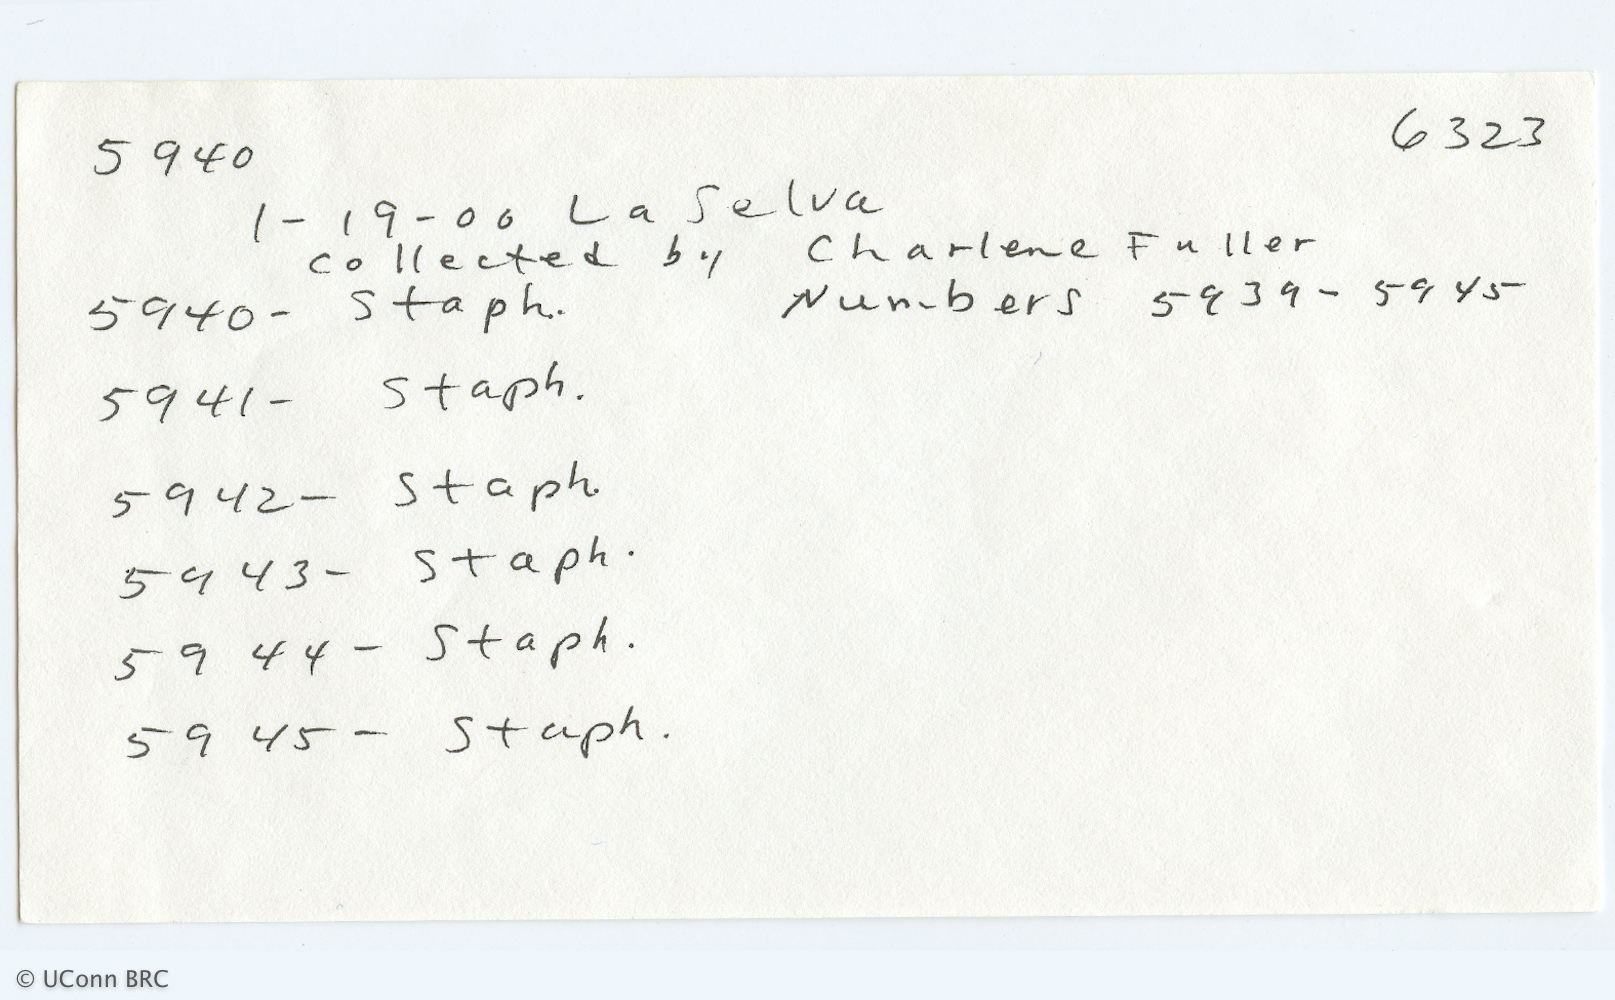 5940 6323
1-19-00 La Selva
collected by Charlene Fuller
5940- Staph. Numbers 5939-5945
5941- Staph.
5942- Staph.
5943- Staph.
5944- Staph.
5945- Staph.
© UConn BRC